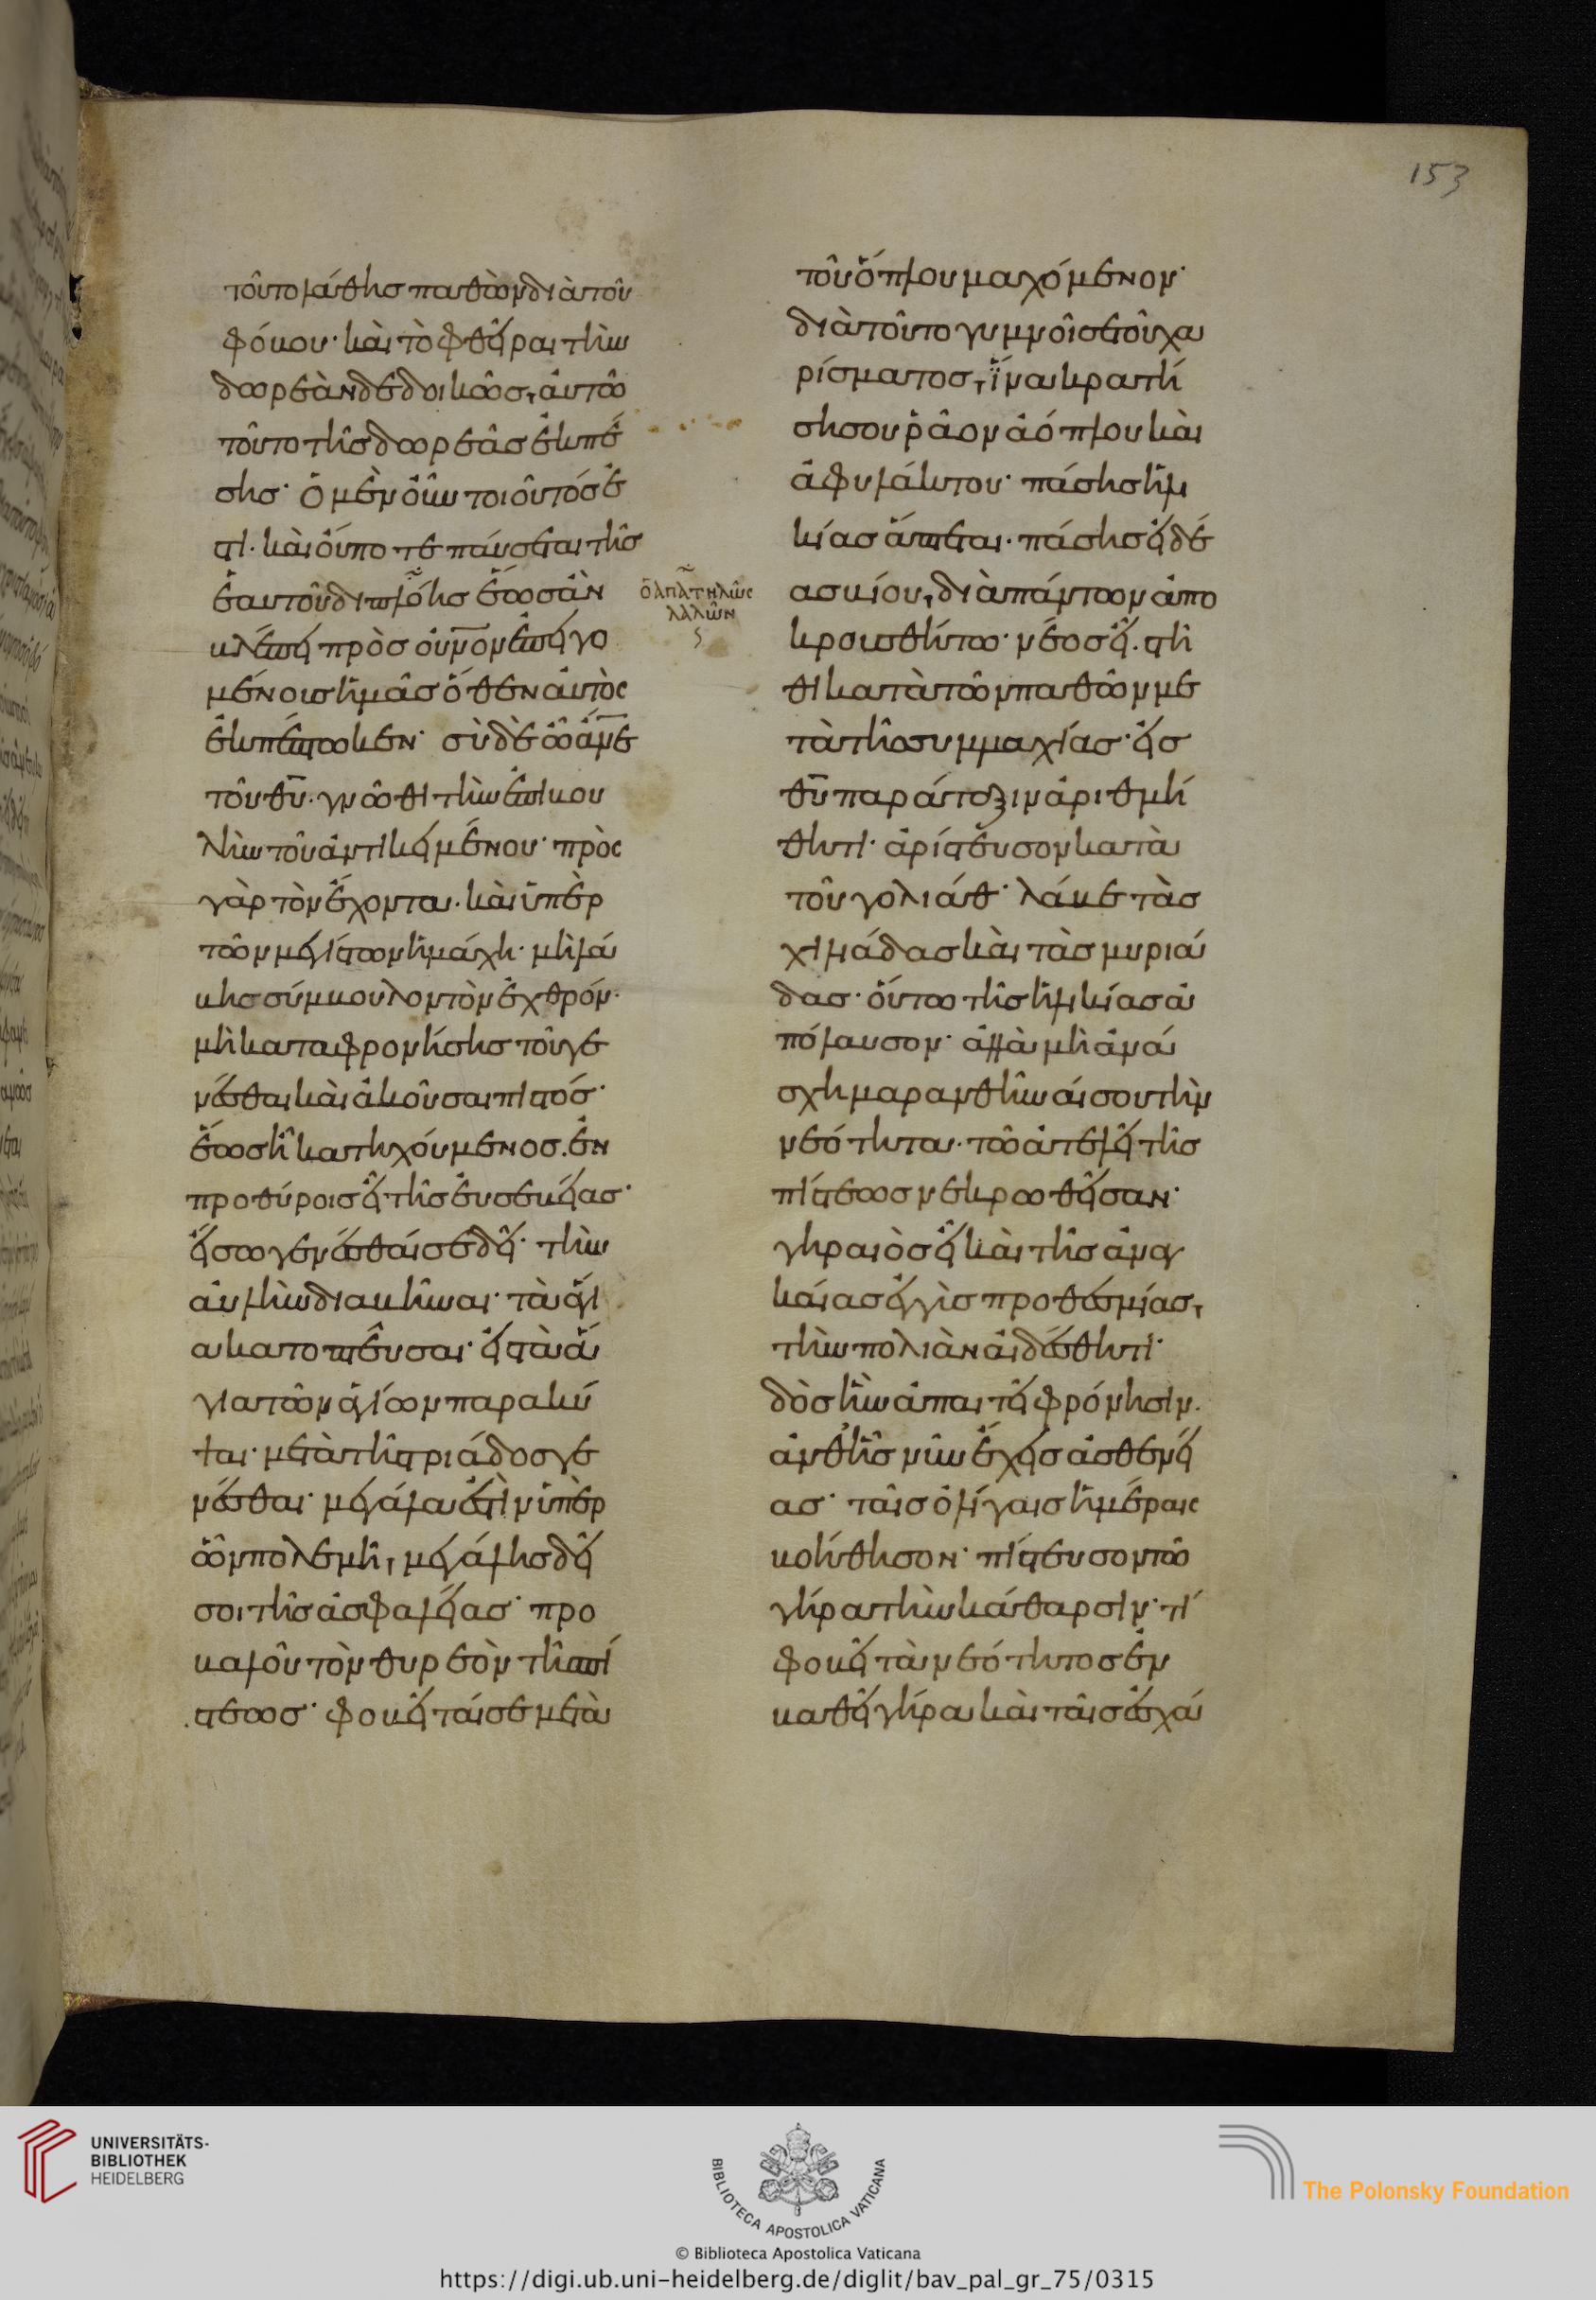 153
τοῦτο λάθης παθὼν διὰ τοῦ
φόβου· καὶ τὸ φθεῖραι τὴν
δωρεὰν δεδοικὼς, αὐτῶ
τοῦτο τῆς δωρεᾶς ἐκπέ
σης· ὁ μὲν οὖν τοιοῦτός ἐ
στι· καὶ οὔποτε παύσεται τῆς
ἑαυτοῦ διπλόης ἕως ἂν
βλέπει πρὸς οὐνον ἐπειγο
μένοις ἡμᾶς ὅθεν αὐτὸς
ἐκπέπτωκεν· σὺ δὲ ὦ ἄνε
τοῦ θυ. γνῶθι τὴν ἐπιβου
λὴν τοῦ ἀντικειμένου· πρὸς
γὰρ τὸν ἔχοντα. καὶ ὑπὲρ
τῶν μεγίστων ἡ μάχη· μὴ λά
βης σύμβουλον τὸν ἐχθρόν·
μὴ καταφρονήσης τοῦ γε
νέσθαι καὶ ἀκοῦσαι πιστός·
ἕως ἧ κατηχούμενος. ἐν
προθύροις εἶ τῆς εὐσεβείας·
εἴσω γενέσθαι σε δεῖ· τὴν
αὐλὴν διαβῆναι· τὰ ἅγι
α κατοπτεῦσαι· εἰς τὰ ἅ
για τῶν ἁγίων παρακύ
ψαι· μετὰ τῆς τριάδος γε
νέσθαι· μεγάλα ἐστὶν ὑπὲρ
ὧν πολεμῆ, μεγάλης δεῖ
σοι τῆς ἀσφαλείας· προ
βαλοῦ τὸν θυρεὸν τῆς πί
στεως· φοβεῖταί σε μετὰ
ὁ ἀπατηλῶς
λαλῶν
τοῦ ὅπλου μαχόμενον·
διὰ τοῦτο γυμνοῖ σε τοῦ χα
ρίσματος, ἵνα κρατή
ση σου ῥᾶον ἀόπλου καὶ
ἀφυλάκτου· πάσης ἡλι
κίας ἅπτεται· πάσης εἴδε
ασ βίου, διὰ πάντων ἀπο
κρουσθήτω· νέος εἶ. στῆ
θι κατὰ τῶν παθῶν με
τὰ τῆς συμμαχίας· εἰς
θυ παράταξιν ἀριθμή
θητι· ἀρίστευσον κατὰ
τοῦ γολιάθ· λάβε τὰς
χιλιάδας καὶ τὰς μυριά
δας· οὕτω τῆς ἡλικίας ἀ
πόλαυσον· ἀλλὰ μὴ ἀνά
σχη μαρανθῆναί σου τὴν
νεότητα· τῶ ἀτελεῖ τῆς
πίστεως νεκρωθεῖσαν·
γηραιὸς εἶ καὶ τῆς ἀναγ
καίας ἐγγὺς προθεσμίας,
τὴν πολιὰν αἰδέσθητι·
δὸς ἣν ἀπαιτεῖ φρόνησιν.
ἀνθ᾽ ἧς νῦν ἔχεις ἀσθενεί
ας· ταῖς ὀλίγαις ἡμέραις
βοήθησον· πίστευσον τῶ
γήρα τὴν κάθαρσιν· τί
φοβεῖ τὰ νεότητος ἐν
βαθεῖ γήρα καὶ ταῖς ἐσχά
UNIVERSITÄTS-
BIBLIOTHEK
HEIDELBERG
BIBLIOTECA APOSTOLICA VATICANA
The Polonsky Foundation
© Biblioteca Apostolica Vaticana
https://digi.ub.uni-heidelberg.de/diglit/bav_pal_gr_75/0315